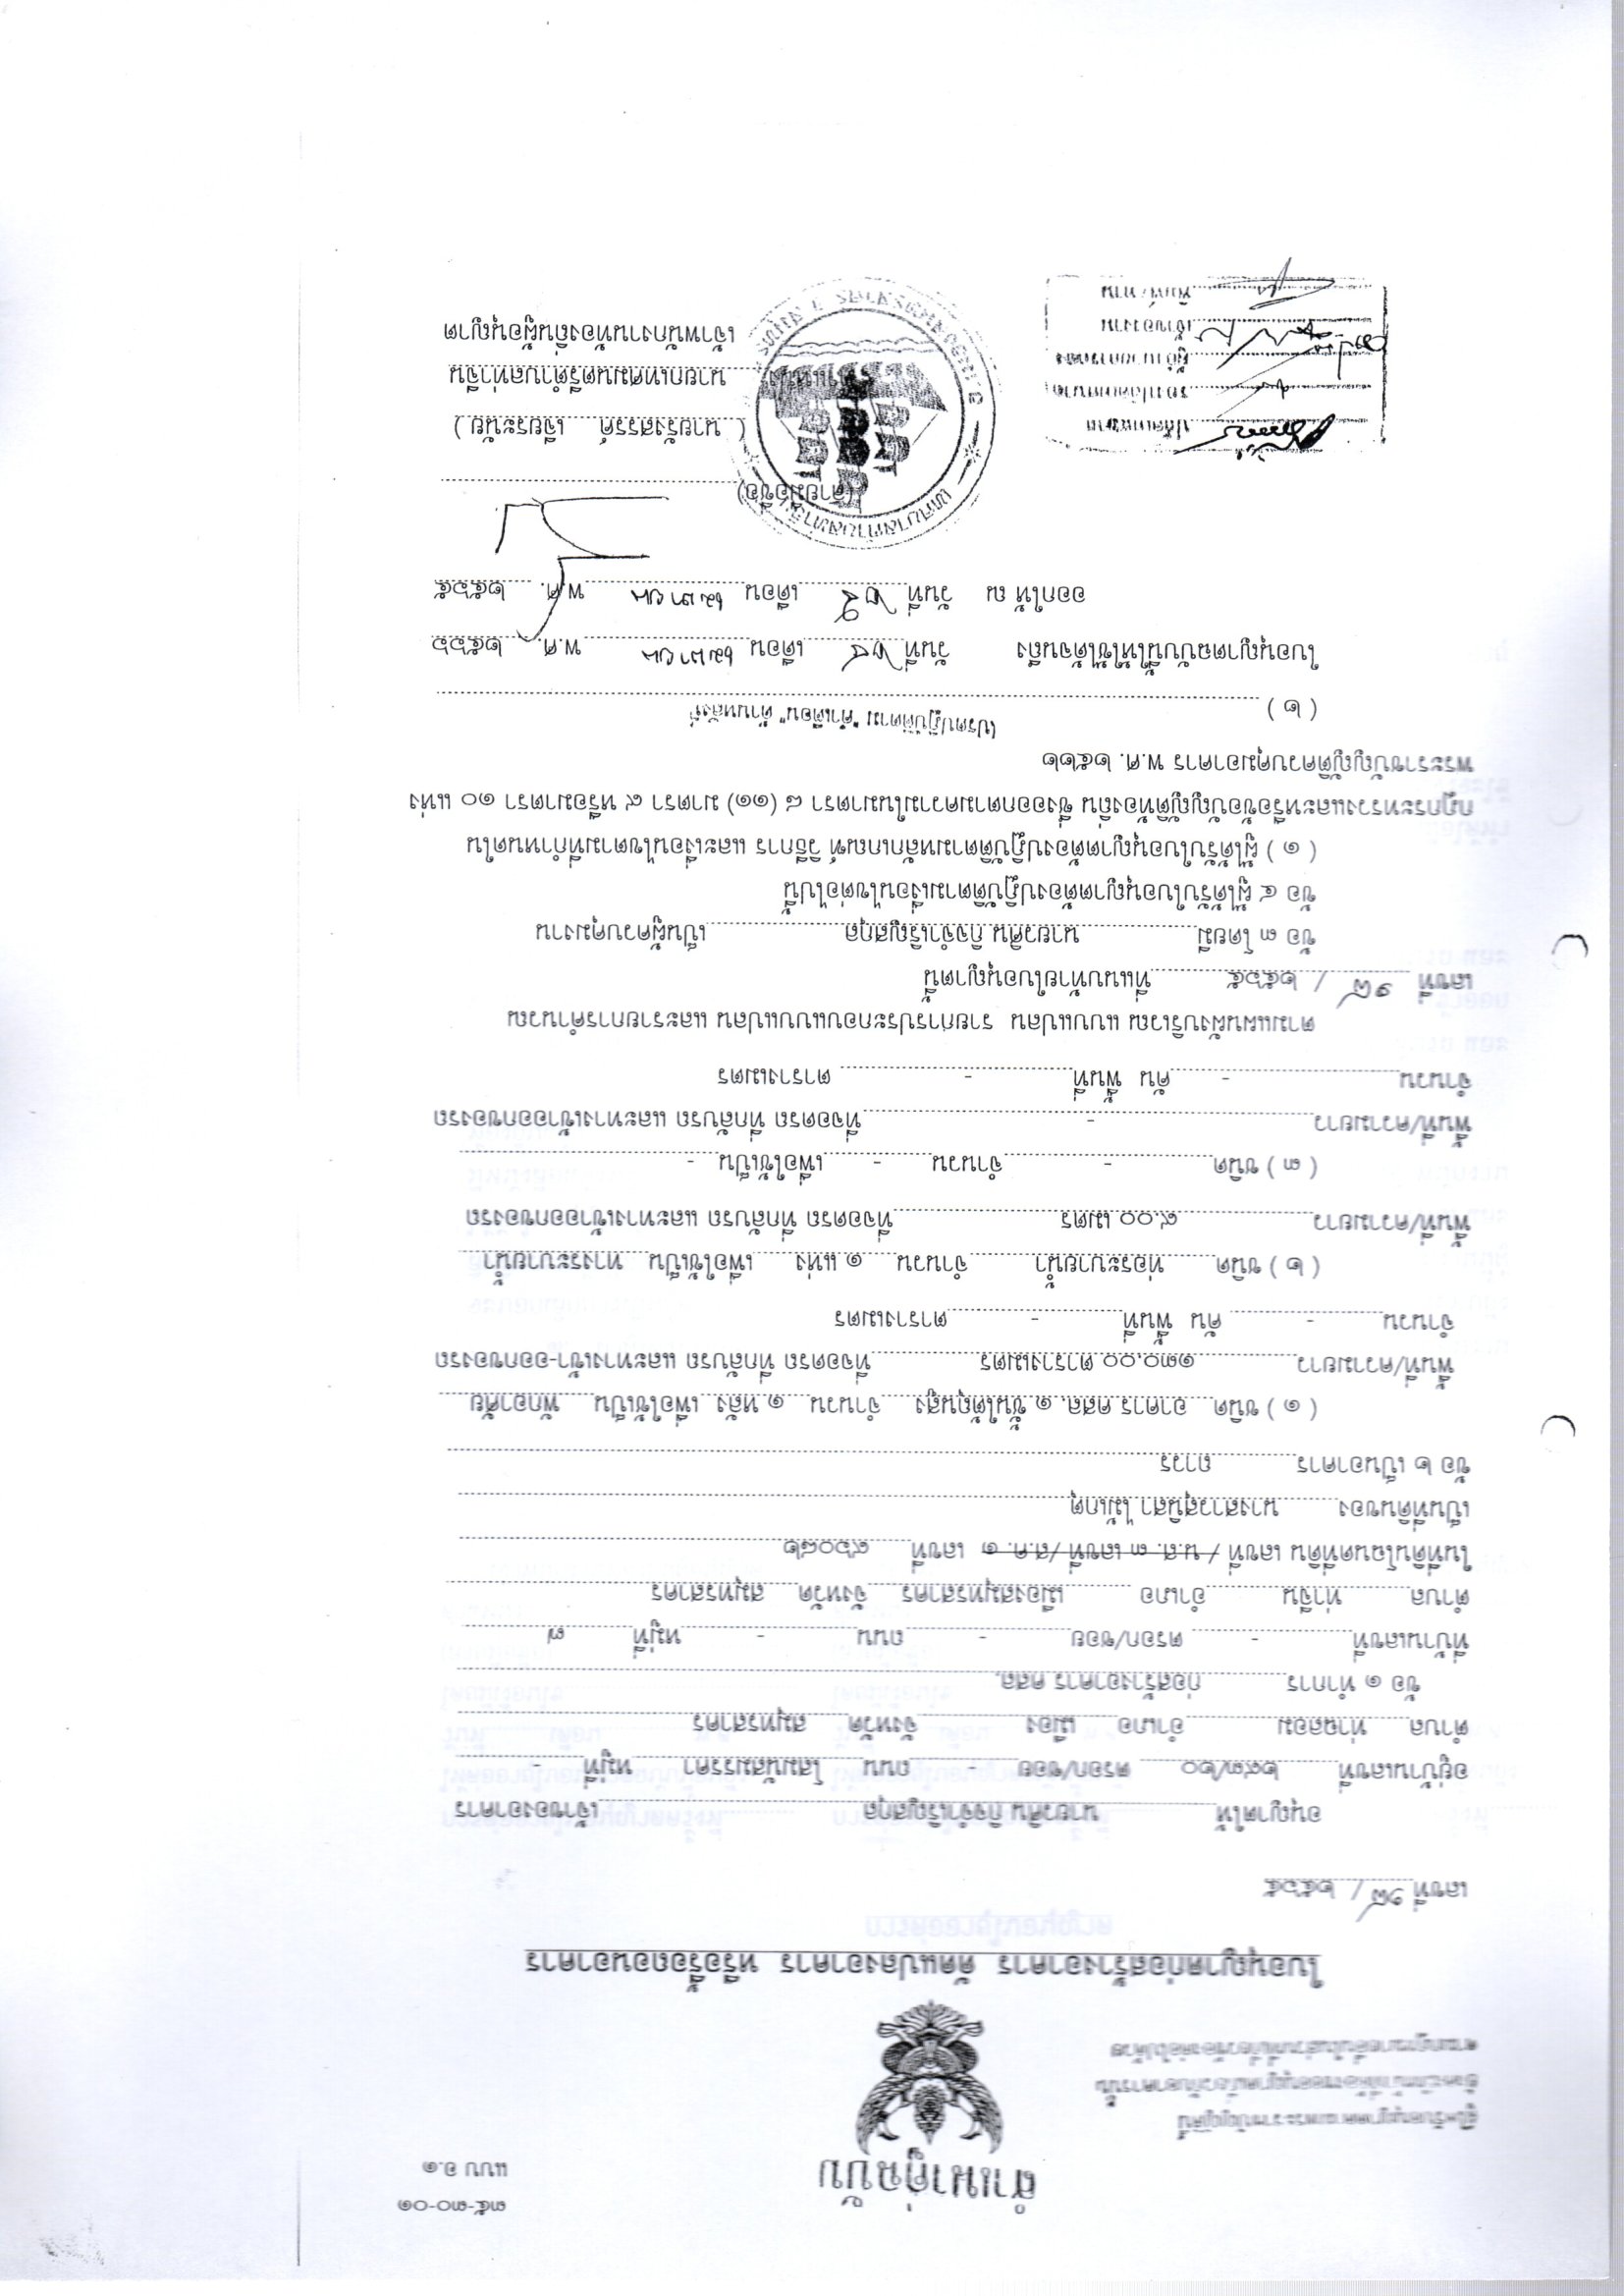 ๓๕-๓๐-๐๑
แบบ อ.๑
สำเนาคู่ฉบับ
ผู้ได้รับอนุญาตตามพระราชบัญญัตินี้
ใบอนุญาตก่อสร้างอาคาร ดัดแปลงอาคาร หรือรื้อถอนอาคาร
เลขที่ ๑๘ / ๒๕๖๕
อนุญาตให้ นายวศิน กิจจำเริญสกุล เจ้าของอาคาร
อยู่บ้านเลขที่ ๒๙๓/๒๐ ตรอก/ซอย - ถนน โสมนัสมรรคา หมู่ที่ -
ตำบล ท่าฉลอม อำเภอ เมือง จังหวัด สมุทรสาคร
ข้อ ๑ ทำการ ก่อสร้างอาคาร คสล.
ที่บ้านเลขที่ - ตรอก/ซอย - ถนน - หมู่ที่ ๗
ตำบล ท่าจีน อำเภอ เมืองสมุทรสาคร จังหวัด สมุทรสาคร
ในที่ดินโฉนดที่ดิน เลขที่ / น.ส. ๓ เลขที่ /ส.ค. ๑ เลขที่ ๙๖๐๘๒
เป็นที่ดินของ นางสาวสุนิสา ไม้เกตุ
ข้อ ๒ เป็นอาคาร ถาวร
( ๑ ) ชนิด อาคาร คสล. ๑ ชั้นใต้ถุนสูง จำนวน ๑ หลัง เพื่อใช้เป็น พักอาศัย
พื้นที่/ความยาว ๑๓๐.๐๐ ตารางเมตร ที่จอดรถ ที่กลับรถ และทางเข้า-ออกของรถ
จำนวน - คัน พื้นที่ - ตารางเมตร
( ๒ ) ชนิด ท่อระบายน้ำ จำนวน ๑ แห่ง เพื่อใช้เป็น ทางระบายน้ำ
พื้นที่/ความยาว ๙.๐๐ เมตร ที่จอดรถ ที่กลับรถ และทางเข้าออกของรถ
( ๓ ) ชนิด - จำนวน - เพื่อใช้เป็น -
พื้นที่/ความยาว - ที่จอดรถ ที่กลับรถ และทางเข้าออกของรถ
จำนวน - คัน พื้นที่ - ตารางเมตร
ตามแผนผังบริเวณ แบบแปลน รายการประกอบแบบแปลน และรายการคำนวณ
เลขที่ ๑๘ / ๒๕๖๕ ที่แนบท้ายใบอนุญาตนี้
ข้อ ๓ โดยมี นายวศิน กิจจำเริญสกุล เป็นผู้ควบคุมงาน
ข้อ ๔ ผู้ได้รับใบอนุญาตต้องปฏิบัติตามเงื่อนไขต่อไปนี้
( ๑ ) ผู้ได้รับใบอนุญาตต้องปฏิบัติตามหลักเกณฑ์ วิธีการ และเงื่อนไขตามที่กำหนดใน
กฎกระทรวงและหรือข้อบัญญัติท้องถิ่น ซึ่งออกตามความในมาตรา ๘ (๑๑) มาตรา ๙ หรือมาตรา ๑๐ แห่ง
พระราชบัญญัติควบคุมอาคาร พ.ศ. ๒๕๒๒
( ๒ ) โปรดปฏิบัติตาม "คำเตือน" ด้านหลังนี้
ใบอนุญาตฉบับนี้ให้ใช้ได้จนถึง วันที่ ๒๔ เดือน เมษายน พ.ศ. ๒๕๖๖
ออกให้ ณ วันที่ ๒๕ เดือน เมษายน พ.ศ. ๒๕๖๕
(ลายมือชื่อ)
( นายรังสรรค์ เจียระนัย )
นายกเทศมนตรีตำบลท่าจีน
ตำแหน่ง
เจ้าพนักงานท้องถิ่นผู้อนุญาต
ปลัดเทศบาล
รองปลัดเทศบาล
ผู้อำนวยการกอง
เจ้าของงาน
พิมพ์/ทาน